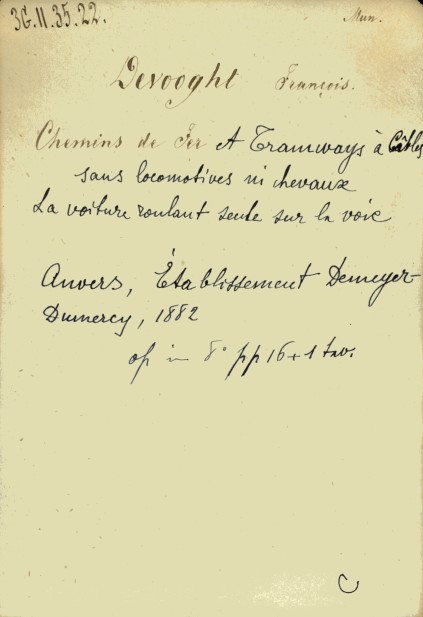 3G.11.35.22. Mun.
Devooght François.
Chemins de Fer et Tramways à Câbles
sans locomotives ni chevaux
La voiture roulant seule sur la voie
Anvers, Établissement Demeyer-
Dumercy, 1882
op in 8° pp 16+1 tav.
C